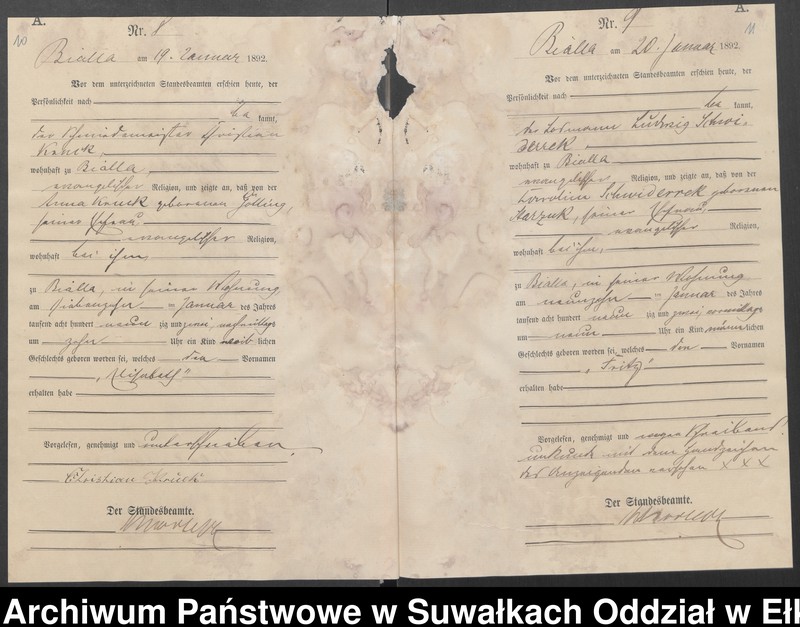 A.
10
Nr. 8
Bialla am 19. Januar 1892.
Vor dem unterzeichneten Standesbeamten erschien heute, der
Persönlichkeit nach
be kannt,
der Schmiedemeister Christian
Kruck,
wohnhaft zu Bialla,
evangelischer Religion, und zeigte an, daß von der
Anna Kruck geborenen Gölling,
seiner Ehefrau,
evangelischer Religion,
wohnhaft bei ihm
zu Bialla, in seiner Wohnung
am siebenzehn ten Januar des Jahres
tausend acht hundert neun zig und zwei, nachmittags
um zehn Uhr ein Kind weib lichen
Geschlechts geboren worden sei, welches den Vornamen
„Elisabeth"
erhalten habe
Vorgelesen, genehmigt und unterschrieben
Christian Kruck
Der Standesbeamte.
A.
11
Nr. 9
Bialla am 20. Januar 1892.
Vor dem unterzeichneten Standesbeamten erschien heute, der
Persönlichkeit nach
be kannt,
der Losmann Ludwig Schwi-
derrek,
wohnhaft zu Bialla
evangelischer Religion, und zeigte an, daß von der
Karoline Schwiderrek geborenen
seiner Ehefrau,
evangelischer Religion,
wohnhaft bei ihm,
zu Bialla, in seiner Wohnung
am neunzehn ten Januar des Jahres
tausend acht hundert neun zig und zwei, vormittags
um neun Uhr ein Kind männ lichen
Geschlechts geboren worden sei, welches den Vornamen
„Fritz"
erhalten habe
Vorgelesen, genehmigt und wegen Schreibens
unkunde mit dem Handzeichen
des Anzeigenden versehen XXX
Der Standesbeamte.
Archiwum Państwowe w Suwałkach Oddział w Ełk